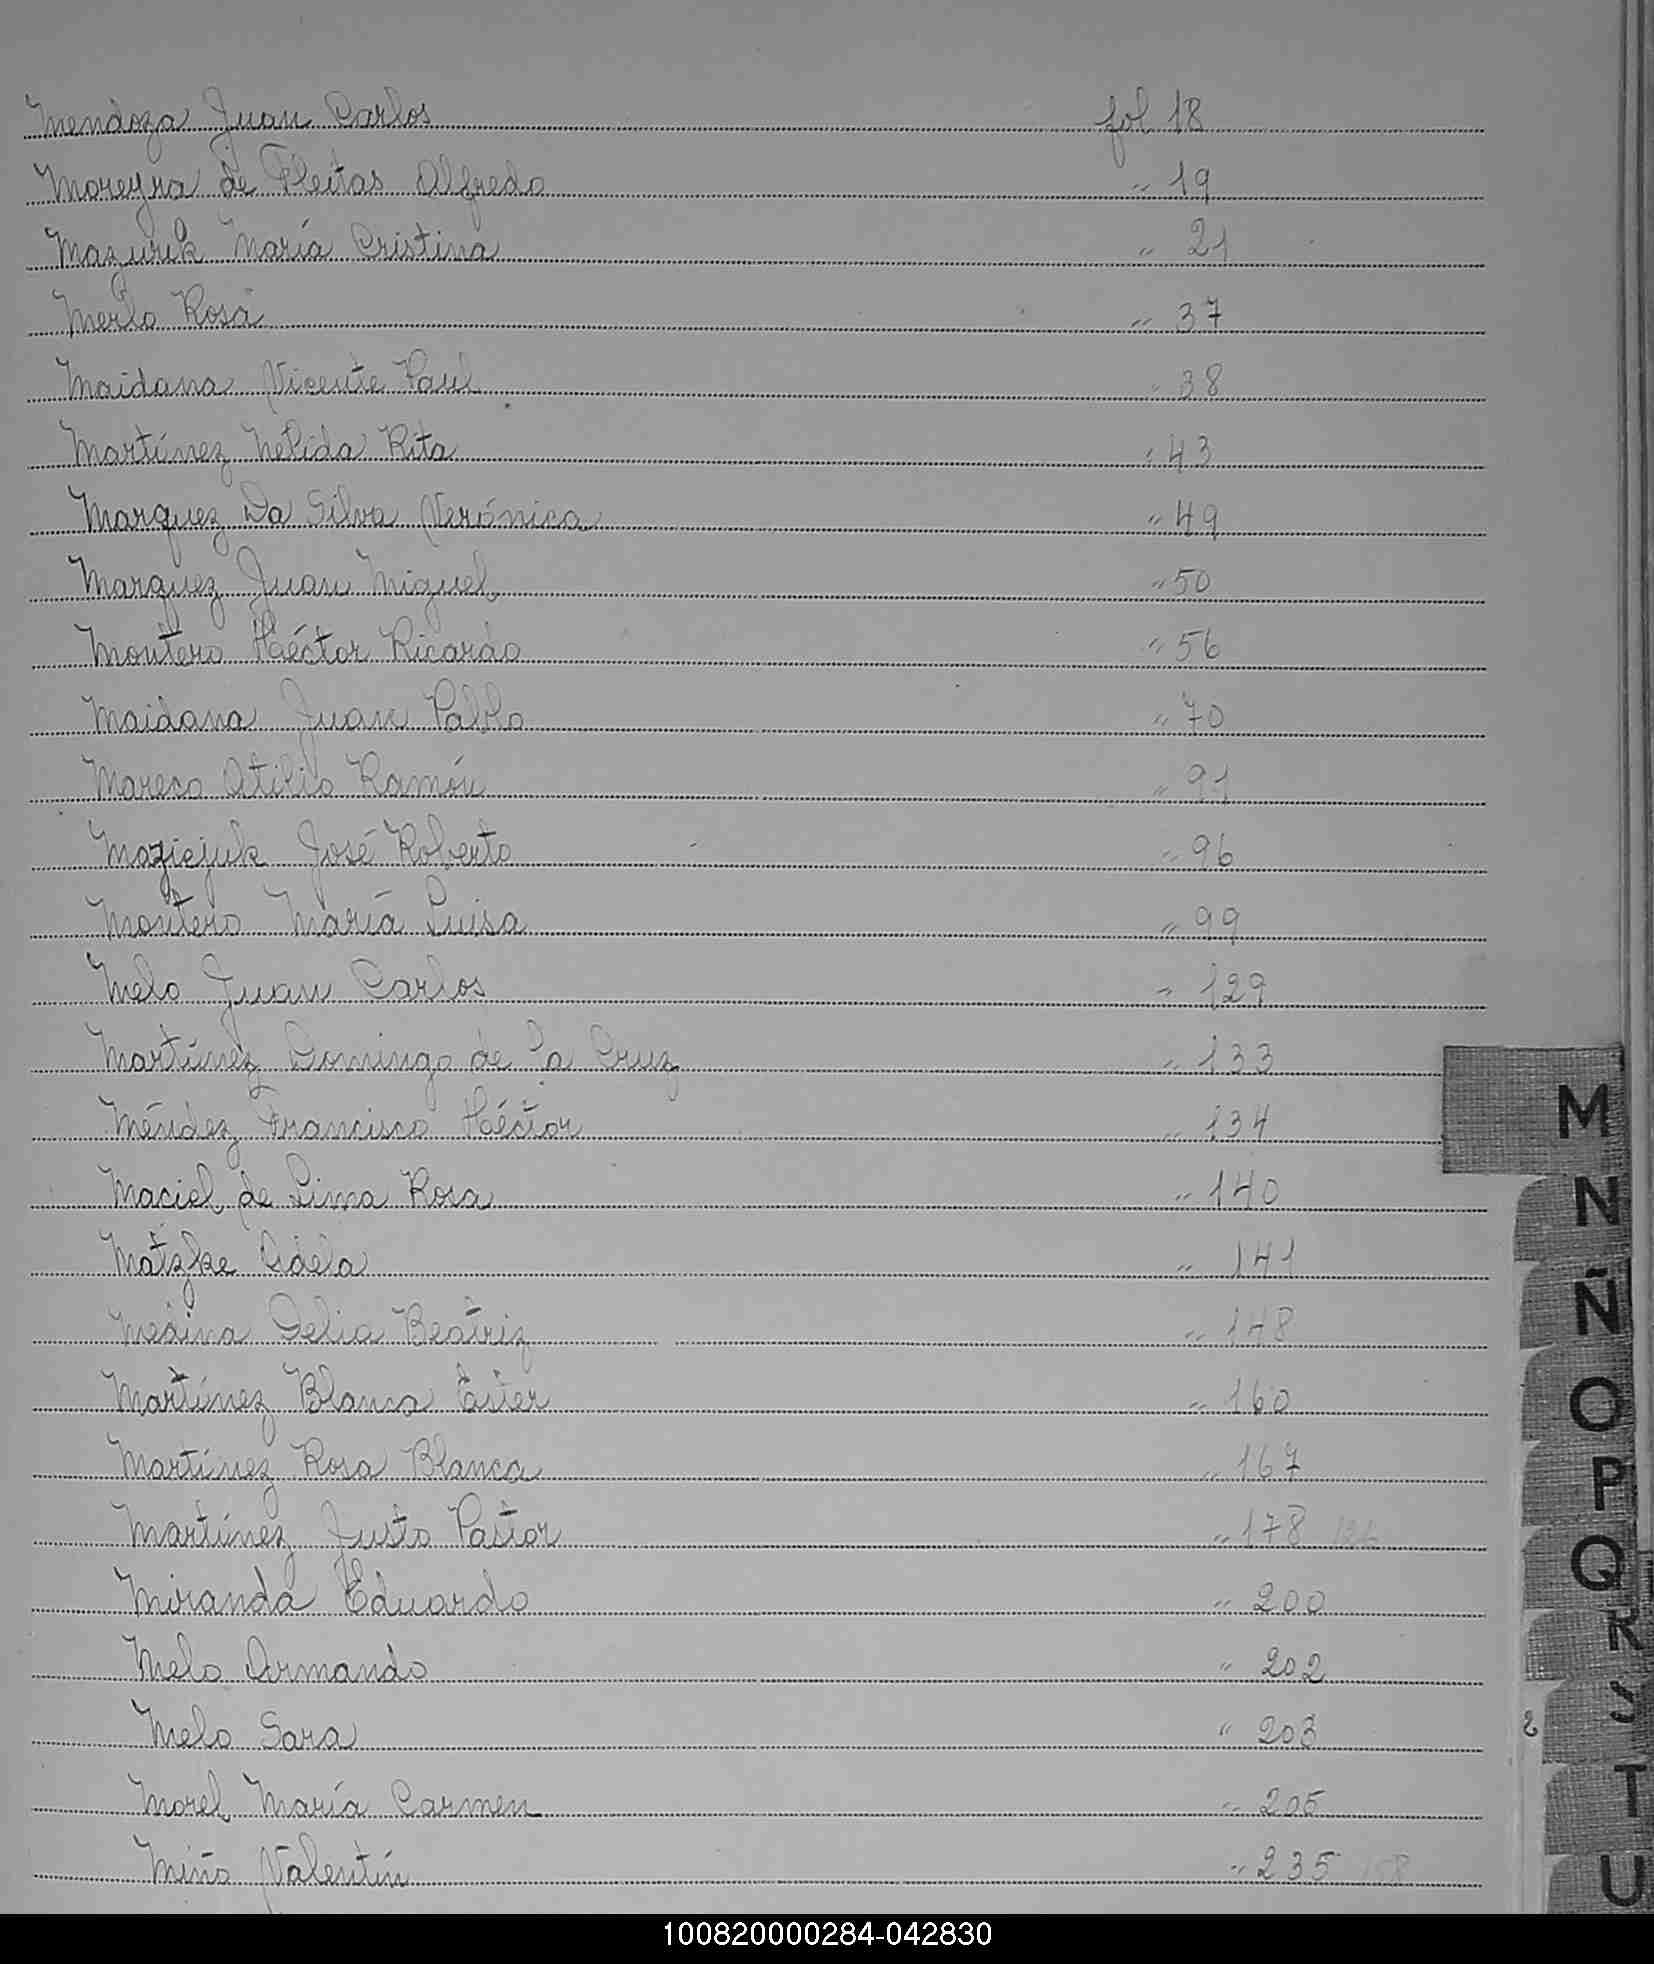 Mendoza Juan Carlos fol 18
Moreyra de Fleitas Alfredo " 19
Mazurek María Cristina " 21
Merlo Rosa " 37
Maidana Vicente Paul " 38
Martínez Nelida Rita " 43
Marquez Da Silva Verónica " 49
Marquez Juan Miguel " 50
Montero Héctor Ricardo " 56
Maidana Juan Pablo " 70
Mareco Atilio Ramón " 91
Maziejuk José Roberto " 96
Montero María Luisa " 99
Melo Juan Carlos " 129
Martínez Domingo de la Cruz " 133
Méndez Francisco Héctor " 134
Maciel de Lima Rosa " 140
Matzke Adela " 141
Medina Delia Beatriz " 148
Martínez Blanca Ester " 160
Martínez Rosa Blanca " 167
Martínez Justo Pastor " 178
Miranda Eduardo " 200
Melo Armando " 202
Melo Sara " 203
Morel María Carmen " 205
Miño Valentín " 235
M
N
Ñ
O
P
Q
R
S
T
U
100820000284-042830